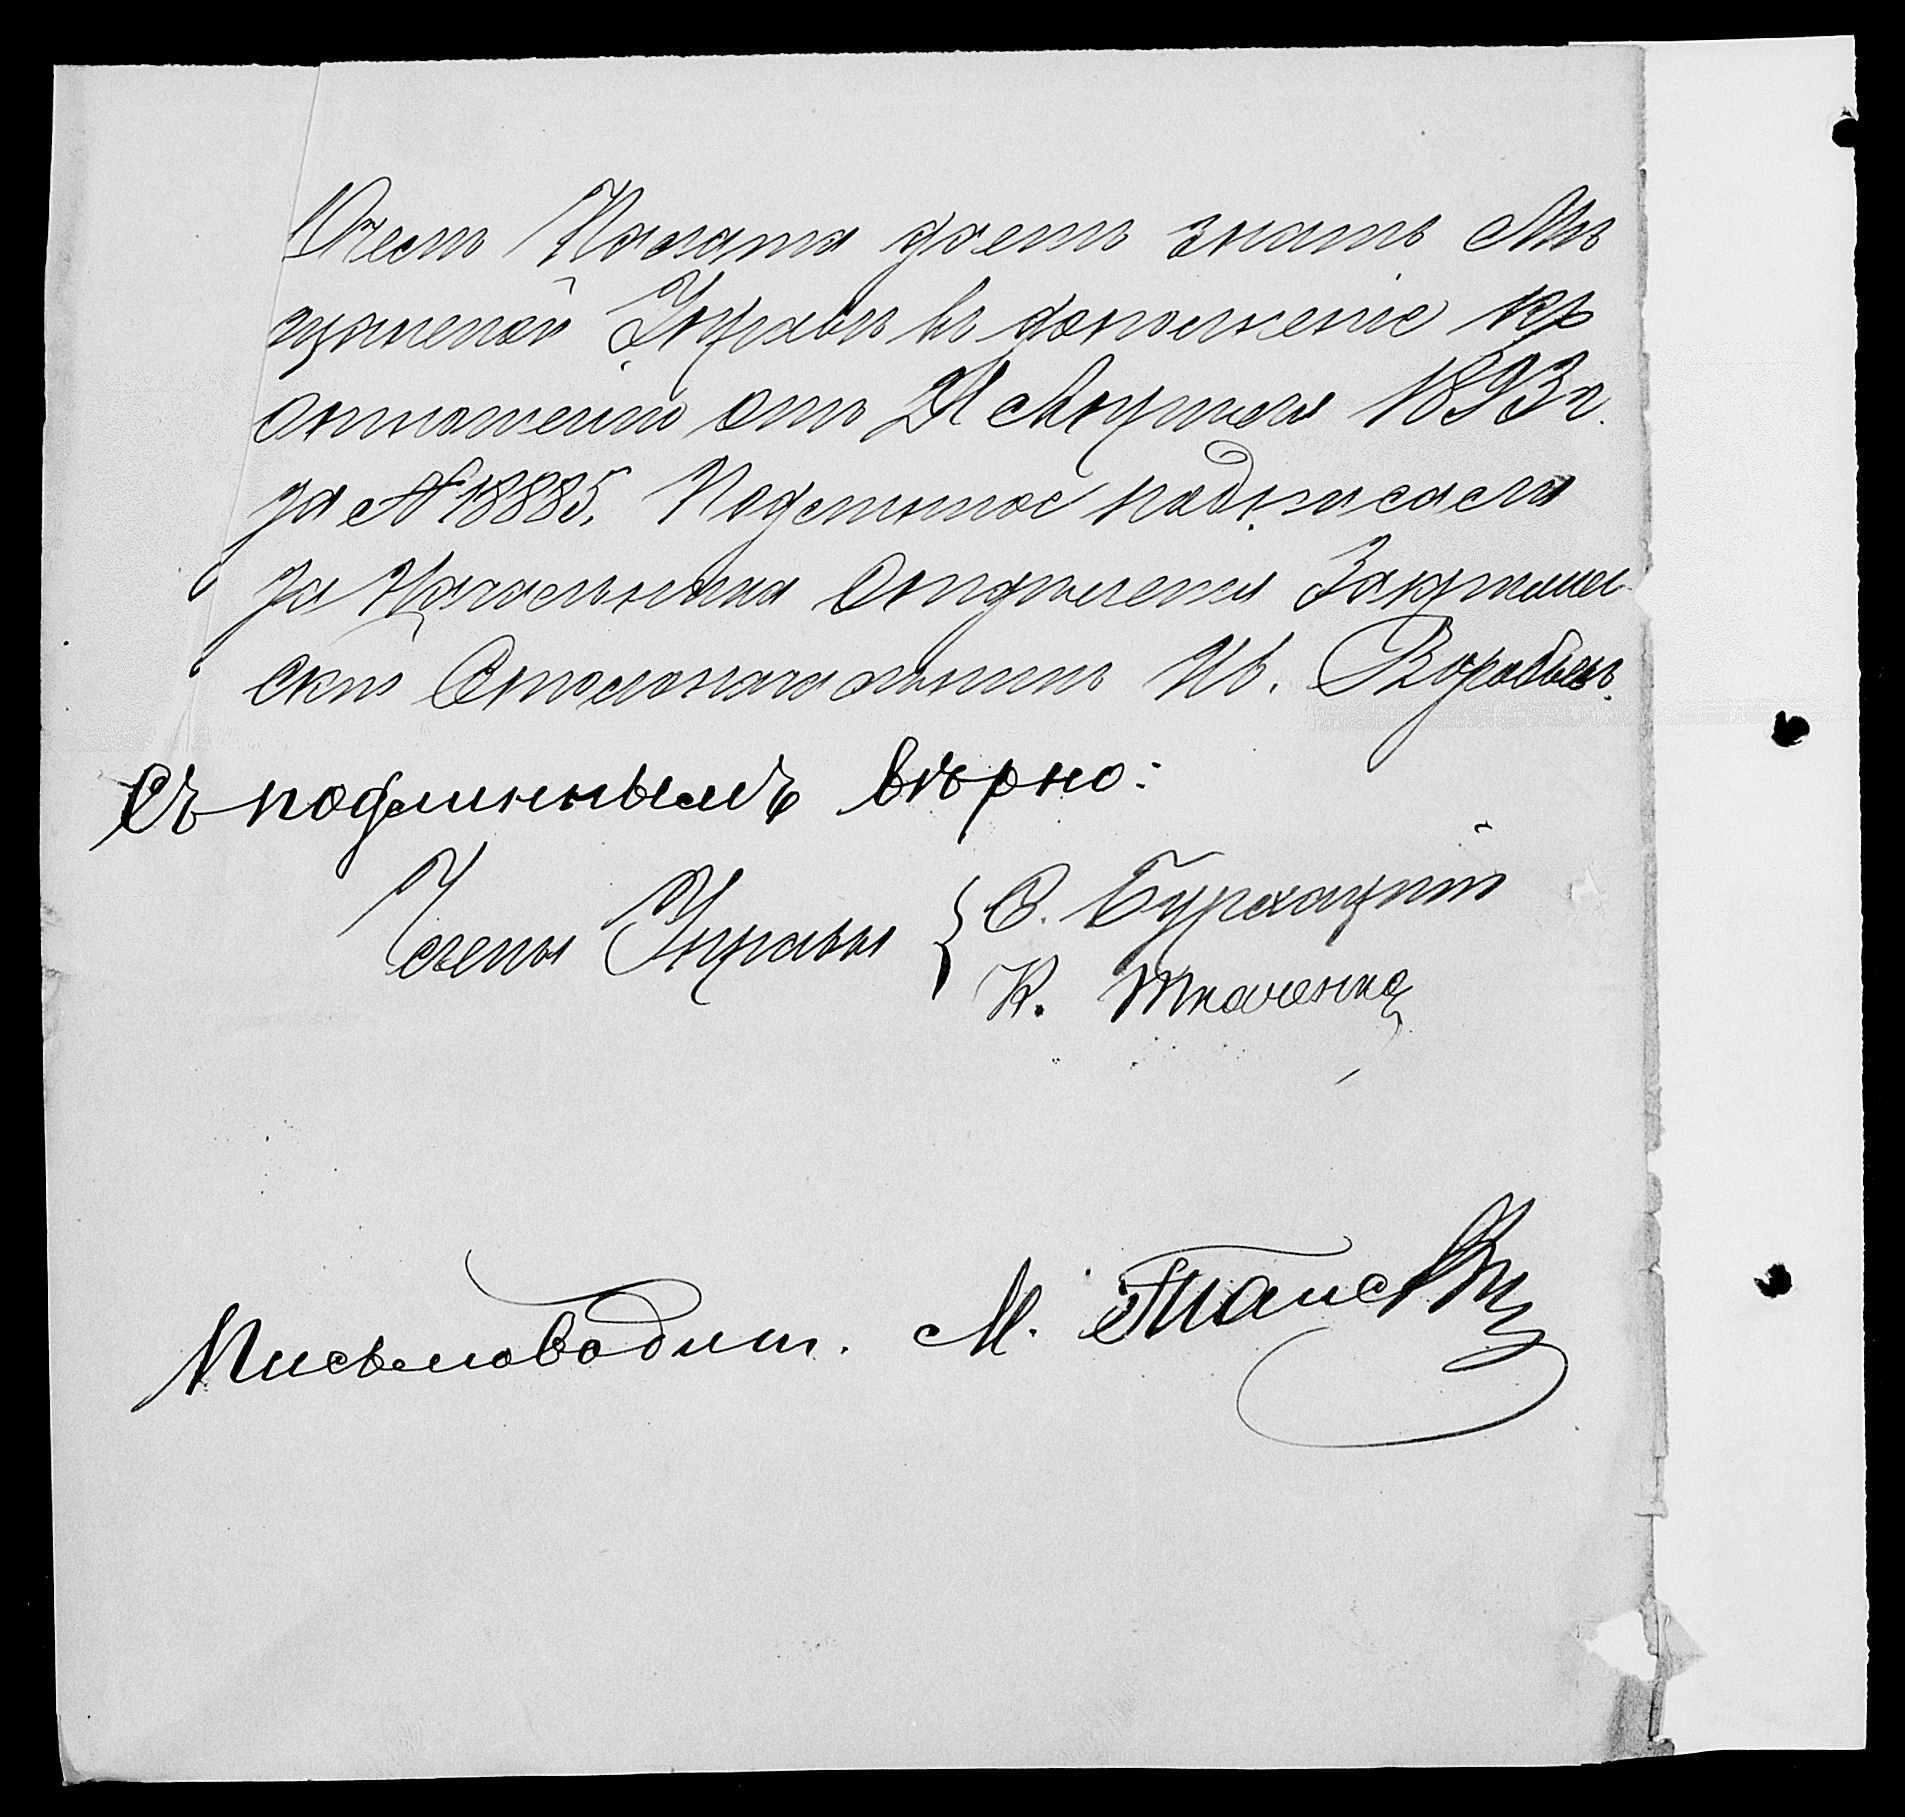 Палата даетъ знать Мѣ
щанской Управѣ въ дополненіе къ
отношенію отъ Августа 1893 г.
за № 18885. Подлинное подписали
за Начальника Отдѣленія
скій Столоначальникъ Ив. Воробьевъ.
Съ подлиннымъ вѣрно:
Члены Управы { С. Бурхацкій
К. Ткаченко
Письмоводит. М.